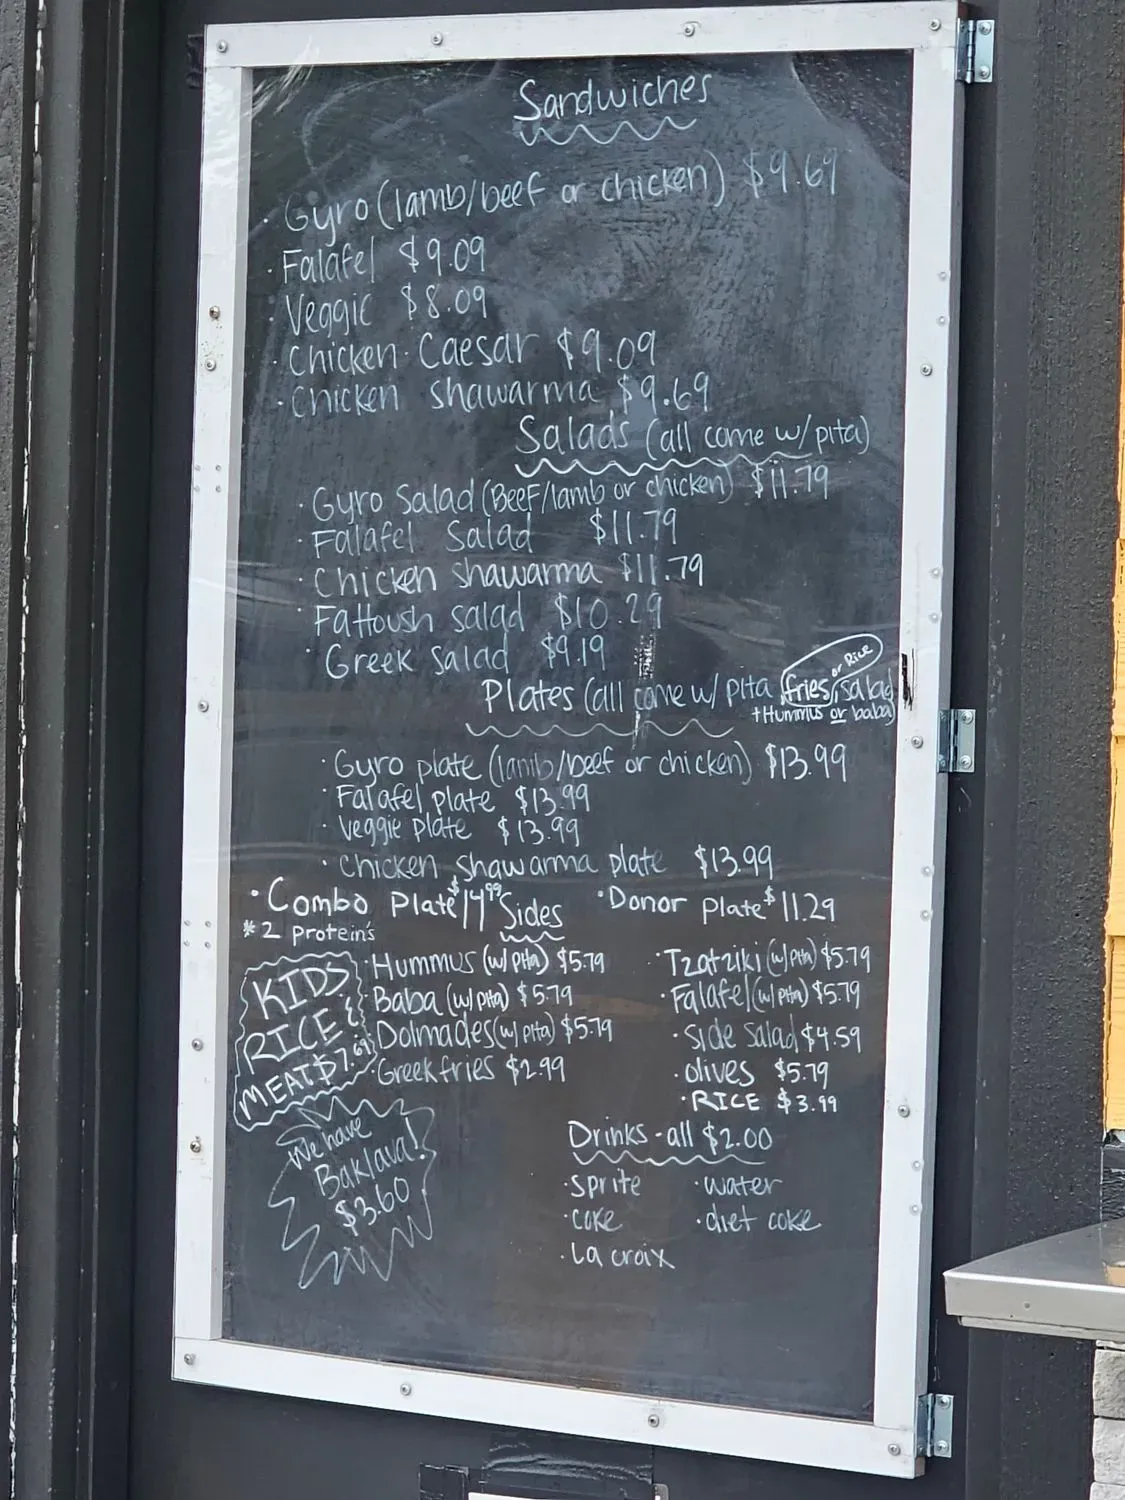 Sandwiches
· Gyro (lamb/beef or chicken) $9.69
· Falafel $9.09
· Veggie $8.09
· Chicken Caesar $9.09
· Chicken shawarma $9.69
Salads (all come w/ pita)
· Gyro Salad (BeeF/lamb or chicken) $11.79
· Falafel Salad $11.79
· Chicken shawarma $11.79
· Fattoush salad $10.29
· Greek salad $9.19
or Rice
Plates (all come w/ pita, fries, salad
+Hummus or baba)
· Gyro plate (lamb/beef or chicken) $13.99
· Falafel plate $13.99
· Veggie plate $13.99
· Chicken shawarma plate $13.99
· Combo Plate $14.99
· Donor plate $11.29
* 2 protein's
Sides
· Hummus (w/ pita) $5.79
· Baba (w/ pita) $5.79
· Dolmades (w/ pita) $5.79
· Greek fries $2.99
· Tzatziki (w/ pita) $5.79
· Falafel (w/ pita) $5.79
· side salad $4.59
· olives $5.79
· RICE $3.99
KIDS
RICE &
MEAT $7.69
We have
Baklava!
$3.60
Drinks - all $2.00
· sprite
· water
· coke
· diet coke
· La croix